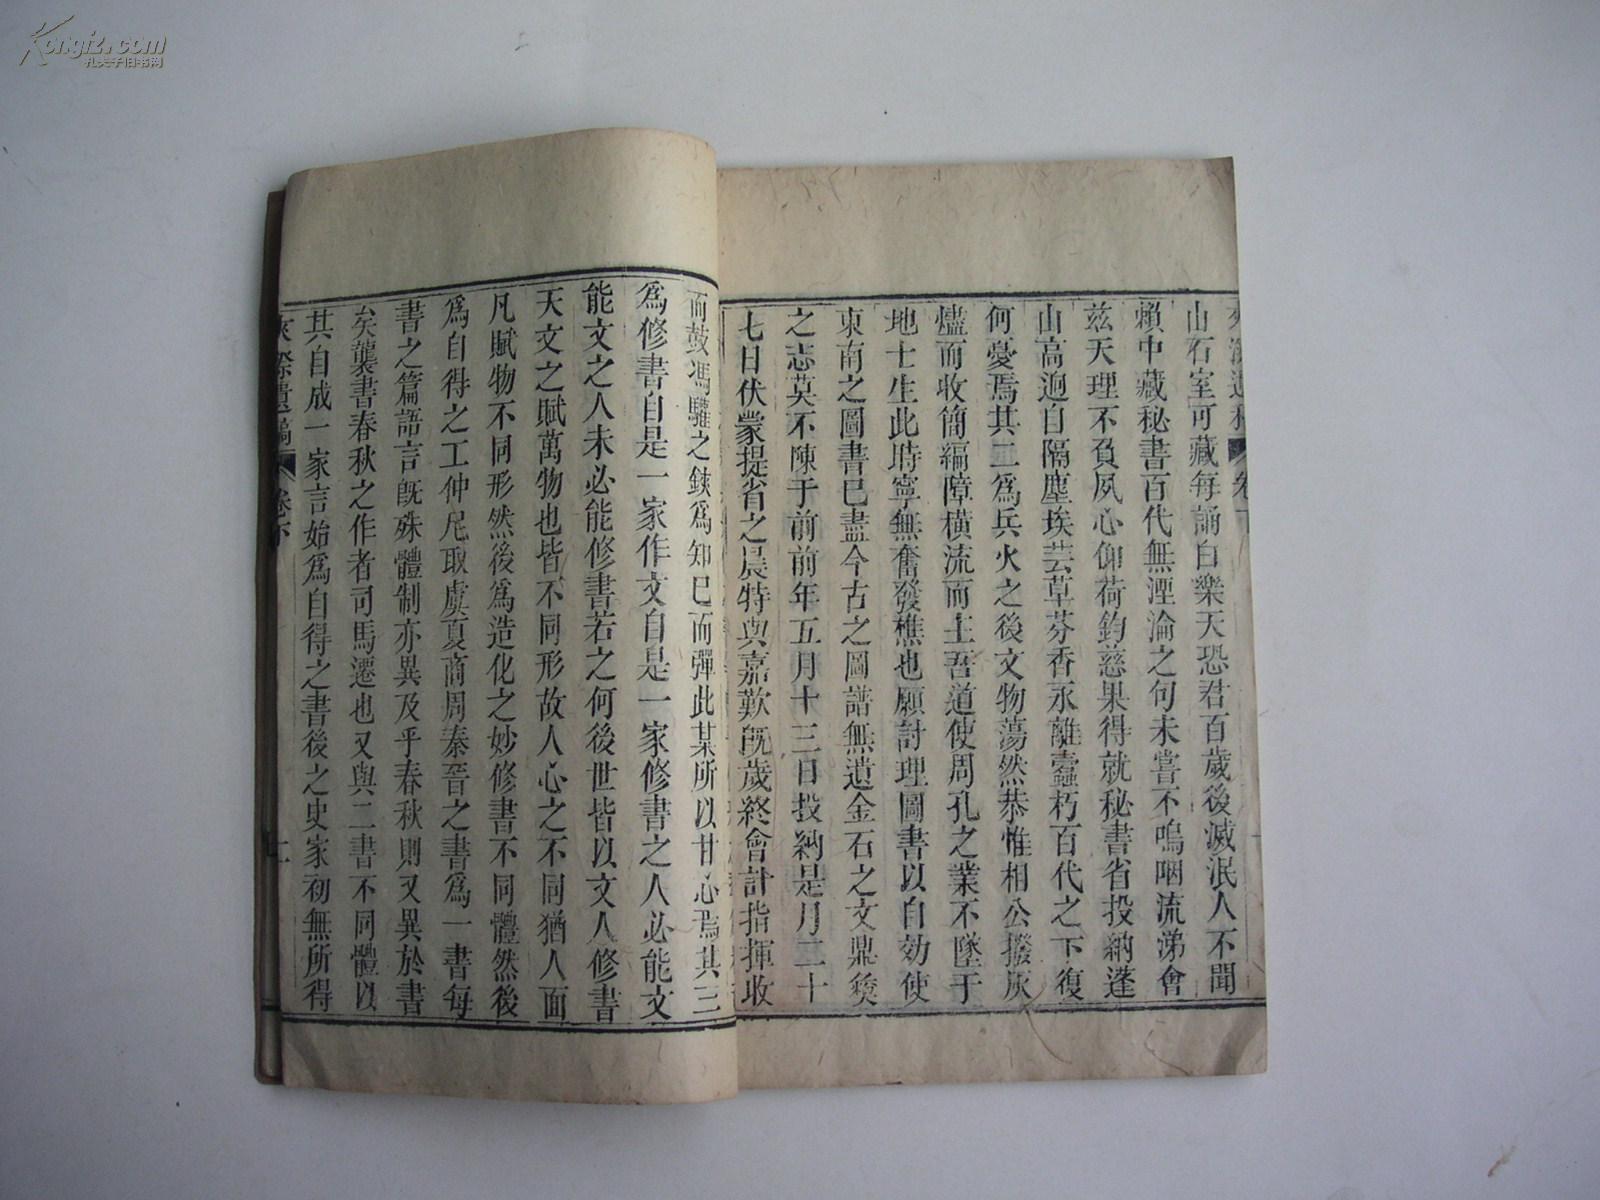 Kongfz.com
孔夫子旧书网
山石室可藏每誦白樂天恐君百歲後滅泯人不聞
賴中藏秘書百代無湮淪之句未嘗不嗚咽流涕會
茲天理不負夙心仰荷鈞慈果得就秘書省投納蓬
山高迥自隔塵埃芸草芬香永離蠹朽百代之下復
何憂焉其二為兵火之後文物蕩然恭惟相公撥灰
燼而收簡編障橫流而主吾道使周孔之業不墜于
地士生此時寧無奮發樵也願討理圖書以自効使
東南之圖書已盡今古之圖譜無遺金石之文鼎彜
之志莫不陳于前前年五月十三日投納是月二十
七日伏蒙提省之晨特與嘉歎既歲終會計指揮收
而鼓馮驩之鋏為知已而彈此某所以甘心焉其三
為修書自是一家作文自是一家修書之人必能文
能文之人未必能修書若之何後世皆以文人修書
天文之賦萬物也皆不同形故人心之不同猶人面
凡賦物不同形然後為造化之妙修書不同體然後
為自得之工仲尼取虞夏商周秦晉之書為一書每
書之篇語言旣殊體制亦異及乎春秋則又異於書
矣襲書春秋之作者司馬遷也又與二書不同體以
其自成一家言始為自得之書後之史家初無所得
夾漈遺稿 卷下